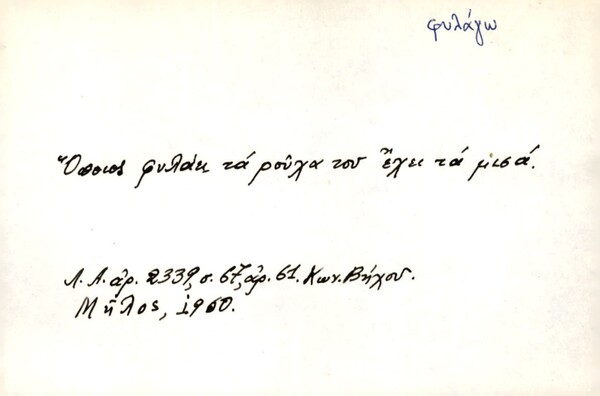 φυλάγω
Ὅποιος φυλάει τά ροῦχα του ἔχει τά μισά.
Λ.Α. ἀρ. 2339, σ. 67, ἀρ. 61. Κων. Βήχου.
Μῆλος, 1960.